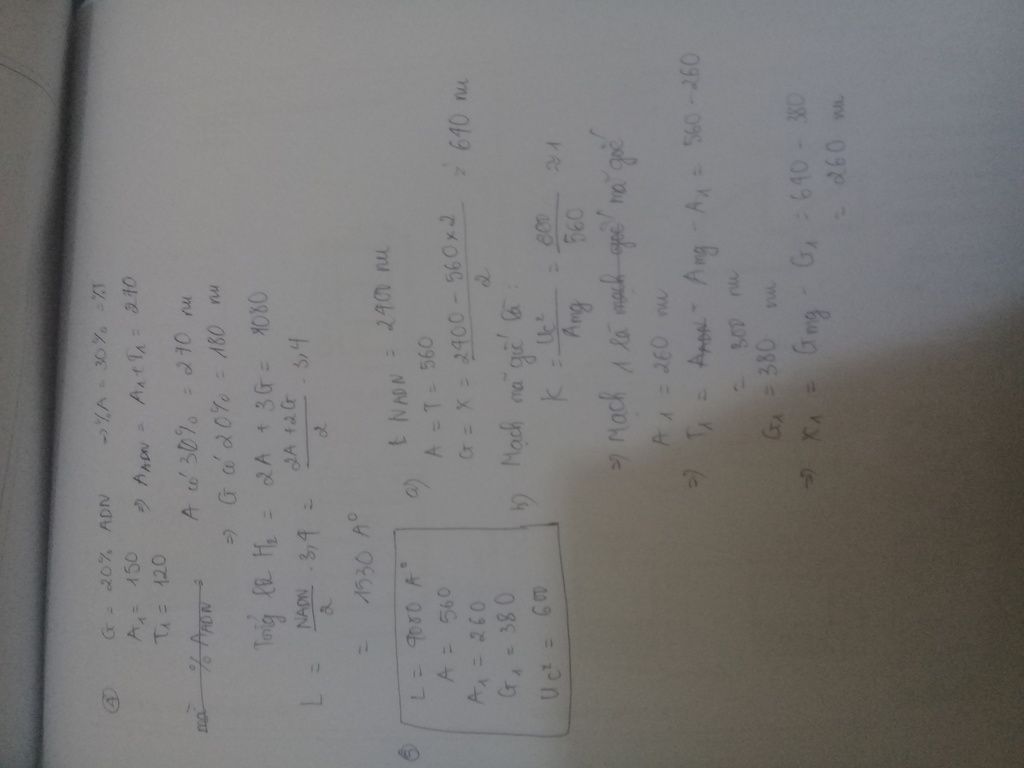 ④ G = 20% ADN ⇒ %A = 30% = %T
A1 = 150
T1 = 120 ⇒ AADN = A1 + T1 = 270
A có 30% = 270 nu
⇒ G có 20% = 180 nu
Tổng lk H2 = 2A + 3G = 1080
L = NADN / 2 . 3,4 = 2A + 2G / 2 . 3,4
= 1530 A°
⑤ L = 4080 A°
A = 560
A1 = 260
G1 = 380
Uc² = 600
a) NADN = 2400 nu
A = T = 560
G = X = 2400 - 560 x 2 / 2 = 640 nu
b) Mạch mã gốc là:
K = Uc² / Amg = 600 / 560 ≈ 1
⇒ Mạch 1 là mạch gốc mã gốc
A1 = 260 nu
⇒ T1 = AADN - Amg - A1 = 560 - 260
= 300 nu
G1 = 380 nu
⇒ X1 = Gmg - G1 = 640 - 380
= 260 nu